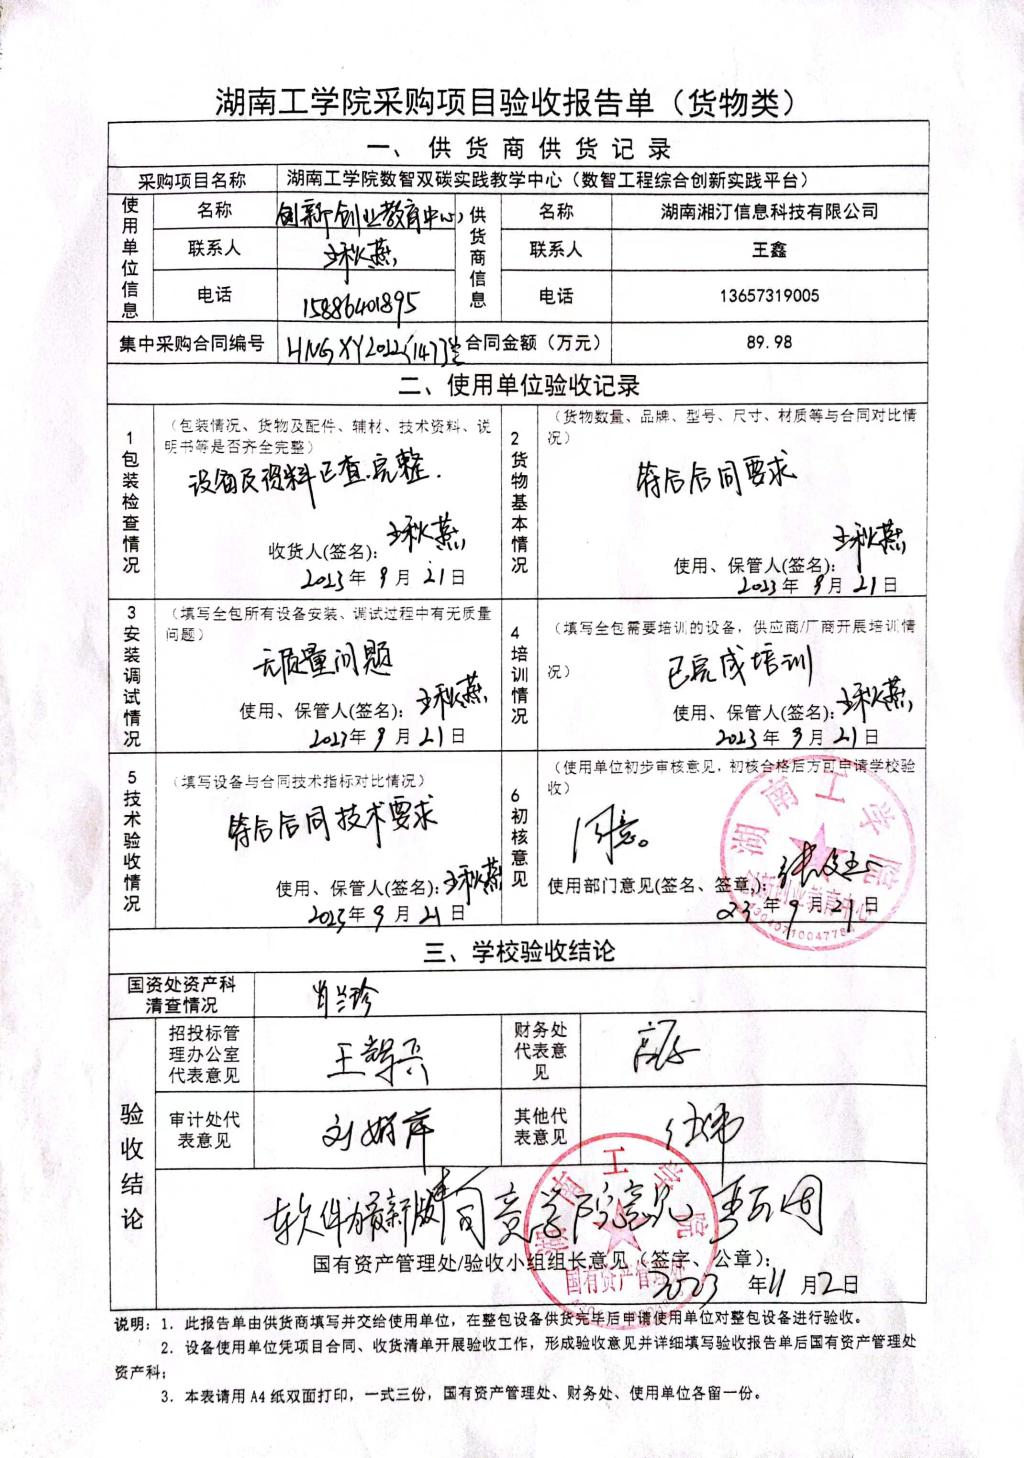 湖南工学院采购项目验收报告单（货物类）
一、供货商供货记录
采购项目名称 湖南工学院数智双碳实践教学中心（数智工程综合创新实践平台）
使用单位信息 名称 创新创业教育中心 供货商信息 名称 湖南湘汀信息科技有限公司
联系人 王秋燕 联系人 王鑫
电话 15886401895 电话 13657319005
集中采购合同编号 HNGXY2022(147) 合同金额（万元） 89.98
二、使用单位验收记录
1包装检查情况
（包装情况、货物及配件、辅材、技术资料、说
明书等是否齐全完整）
设备及资料已查完整.
收货人(签名): 王秋燕
2023年9月21日
2货物基本情况
（货物数量、品牌、型号、尺寸、材质等与合同对比情
况）
符合合同要求
使用、保管人(签名): 王秋燕
2023年9月21日
3安装调试情况
（填写全包所有设备安装、调试过程中有无质量
问题）
无质量问题
使用、保管人(签名): 王秋燕
2023年9月21日
4培训情况
（填写全包需要培训的设备，供应商/厂商开展培训情
况）
已完成培训
使用、保管人(签名): 王秋燕
2023年9月21日
5技术验收情况
（填写设备与合同技术指标对比情况）
符合合同技术要求
使用、保管人(签名): 王秋燕
2023年9月21日
6初核意见
（使用单位初步审核意见，初核合格后方可申请学校验
收）
同意。
使用部门意见(签名、签章):
23年9月21日
湖南工学院
创新创业教育中心
三、学校验收结论
国资处资产科
清查情况
肖兰珍
验收结论
招投标管
理办公室
代表意见
财务处
代表意
见
审计处代
表意见
刘娟萍
其他代
表意见
伍炜
软件为最新版 同意学院意见
国有资产管理处/验收小组组长意见（签字、公章）:
2023年11月2日
湖南工学院
国有资产管理处
说明：1．此报告单由供货商填写并交给使用单位，在整包设备供货完毕后申请使用单位对整包设备进行验收。
2．设备使用单位凭项目合同、收货清单开展验收工作，形成验收意见并详细填写验收报告单后国有资产管理处
资产科；
3．本表请用A4纸双面打印，一式三份，国有资产管理处、财务处、使用单位各留一份。